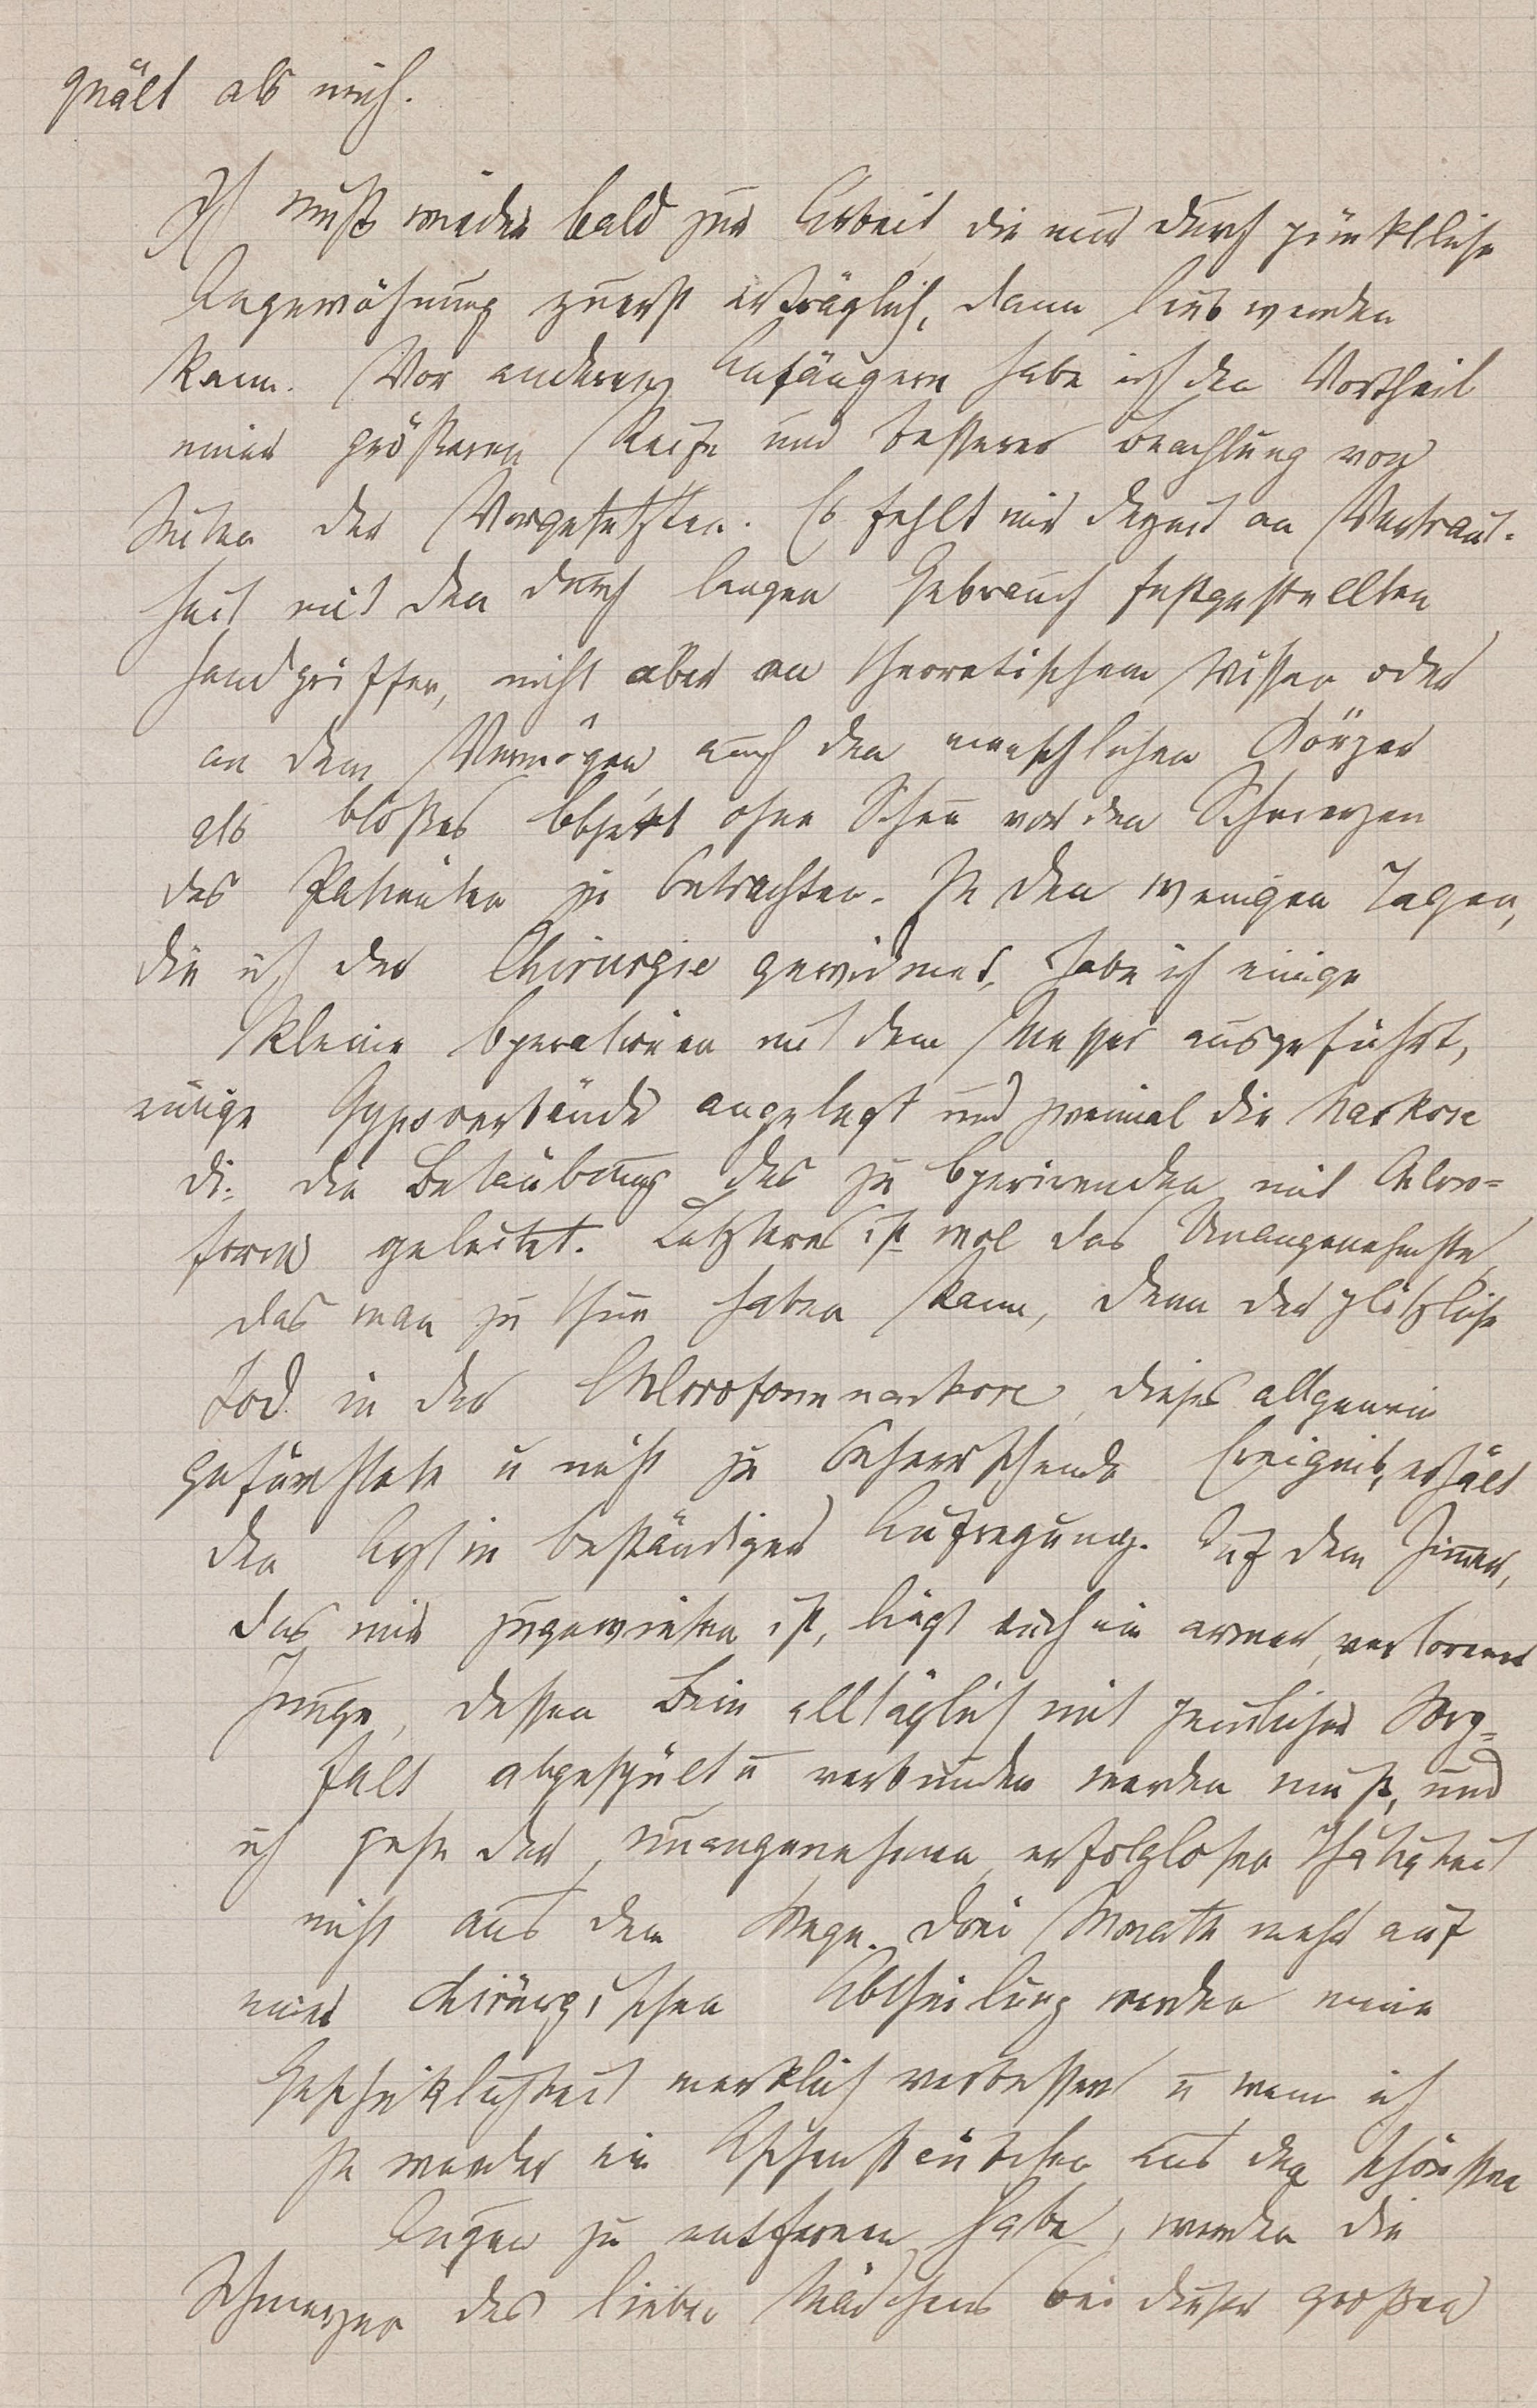 quält als mich.
Ich muß wieder bald zur Arbeit, die nur durch pünktliche
Angewöhnung zuerst erträglich, dann lieb werden
kann. Vor anderen Anfängern habe ich den Vortheil
einer größeren Reife und besserer Beachtung von
Seiten der Vorgesetzten. Es fehlt mir derzeit an Vertraut-
heit mit den durch langen Gebrauch festgestellten
Handgriffen, nicht aber an theoretischem Wissen oder
an dem Vermögen, auch den menschlichen Körper
als bloßes Objekt ohne Scheu vor den Schmerzen
des Patienten zu betrachten. In den wenigen Tagen,
die ich der Chirurgie gewidmet, habe ich einige
kleine Operationen mit dem Messer ausgeführt,
einige Gypsverbände angelegt und zweimal die Narkose
di. die Betäubung des zu Operirenden mit Chloro-
form geleitet. Letzteres ist wol das Unangenehmste,
das man zu thun haben kann, denn der plötzliche
Tod in der Chloroformnarkose, dieses allgemein
gefürchtete u nicht zu beherrschende Ereignis, erhält
den Arzt in beständiger Aufregung. Auf dem Zimmer,
das mir zugewiesen ist, liegt auch ein armer, verlorener
Junge, dessen Bein alltäglich mit peinlicher Sorg-
falt abgespült u verbunden werden muß, und
ich gehe der unangenehmen, erfolglosen Thätigkeit
nicht aus dem Wege. Drei Monate mehr auf
einer chirurgischen Abtheilung werden meine
Geschicklichkeit merklich verbessern u wenn ich
je wieder ein Aschenstäubchen aus den schönsten
Augen zu entfernen habe, werden die
Schmerzen des lieben Mädchens bei dieser großen